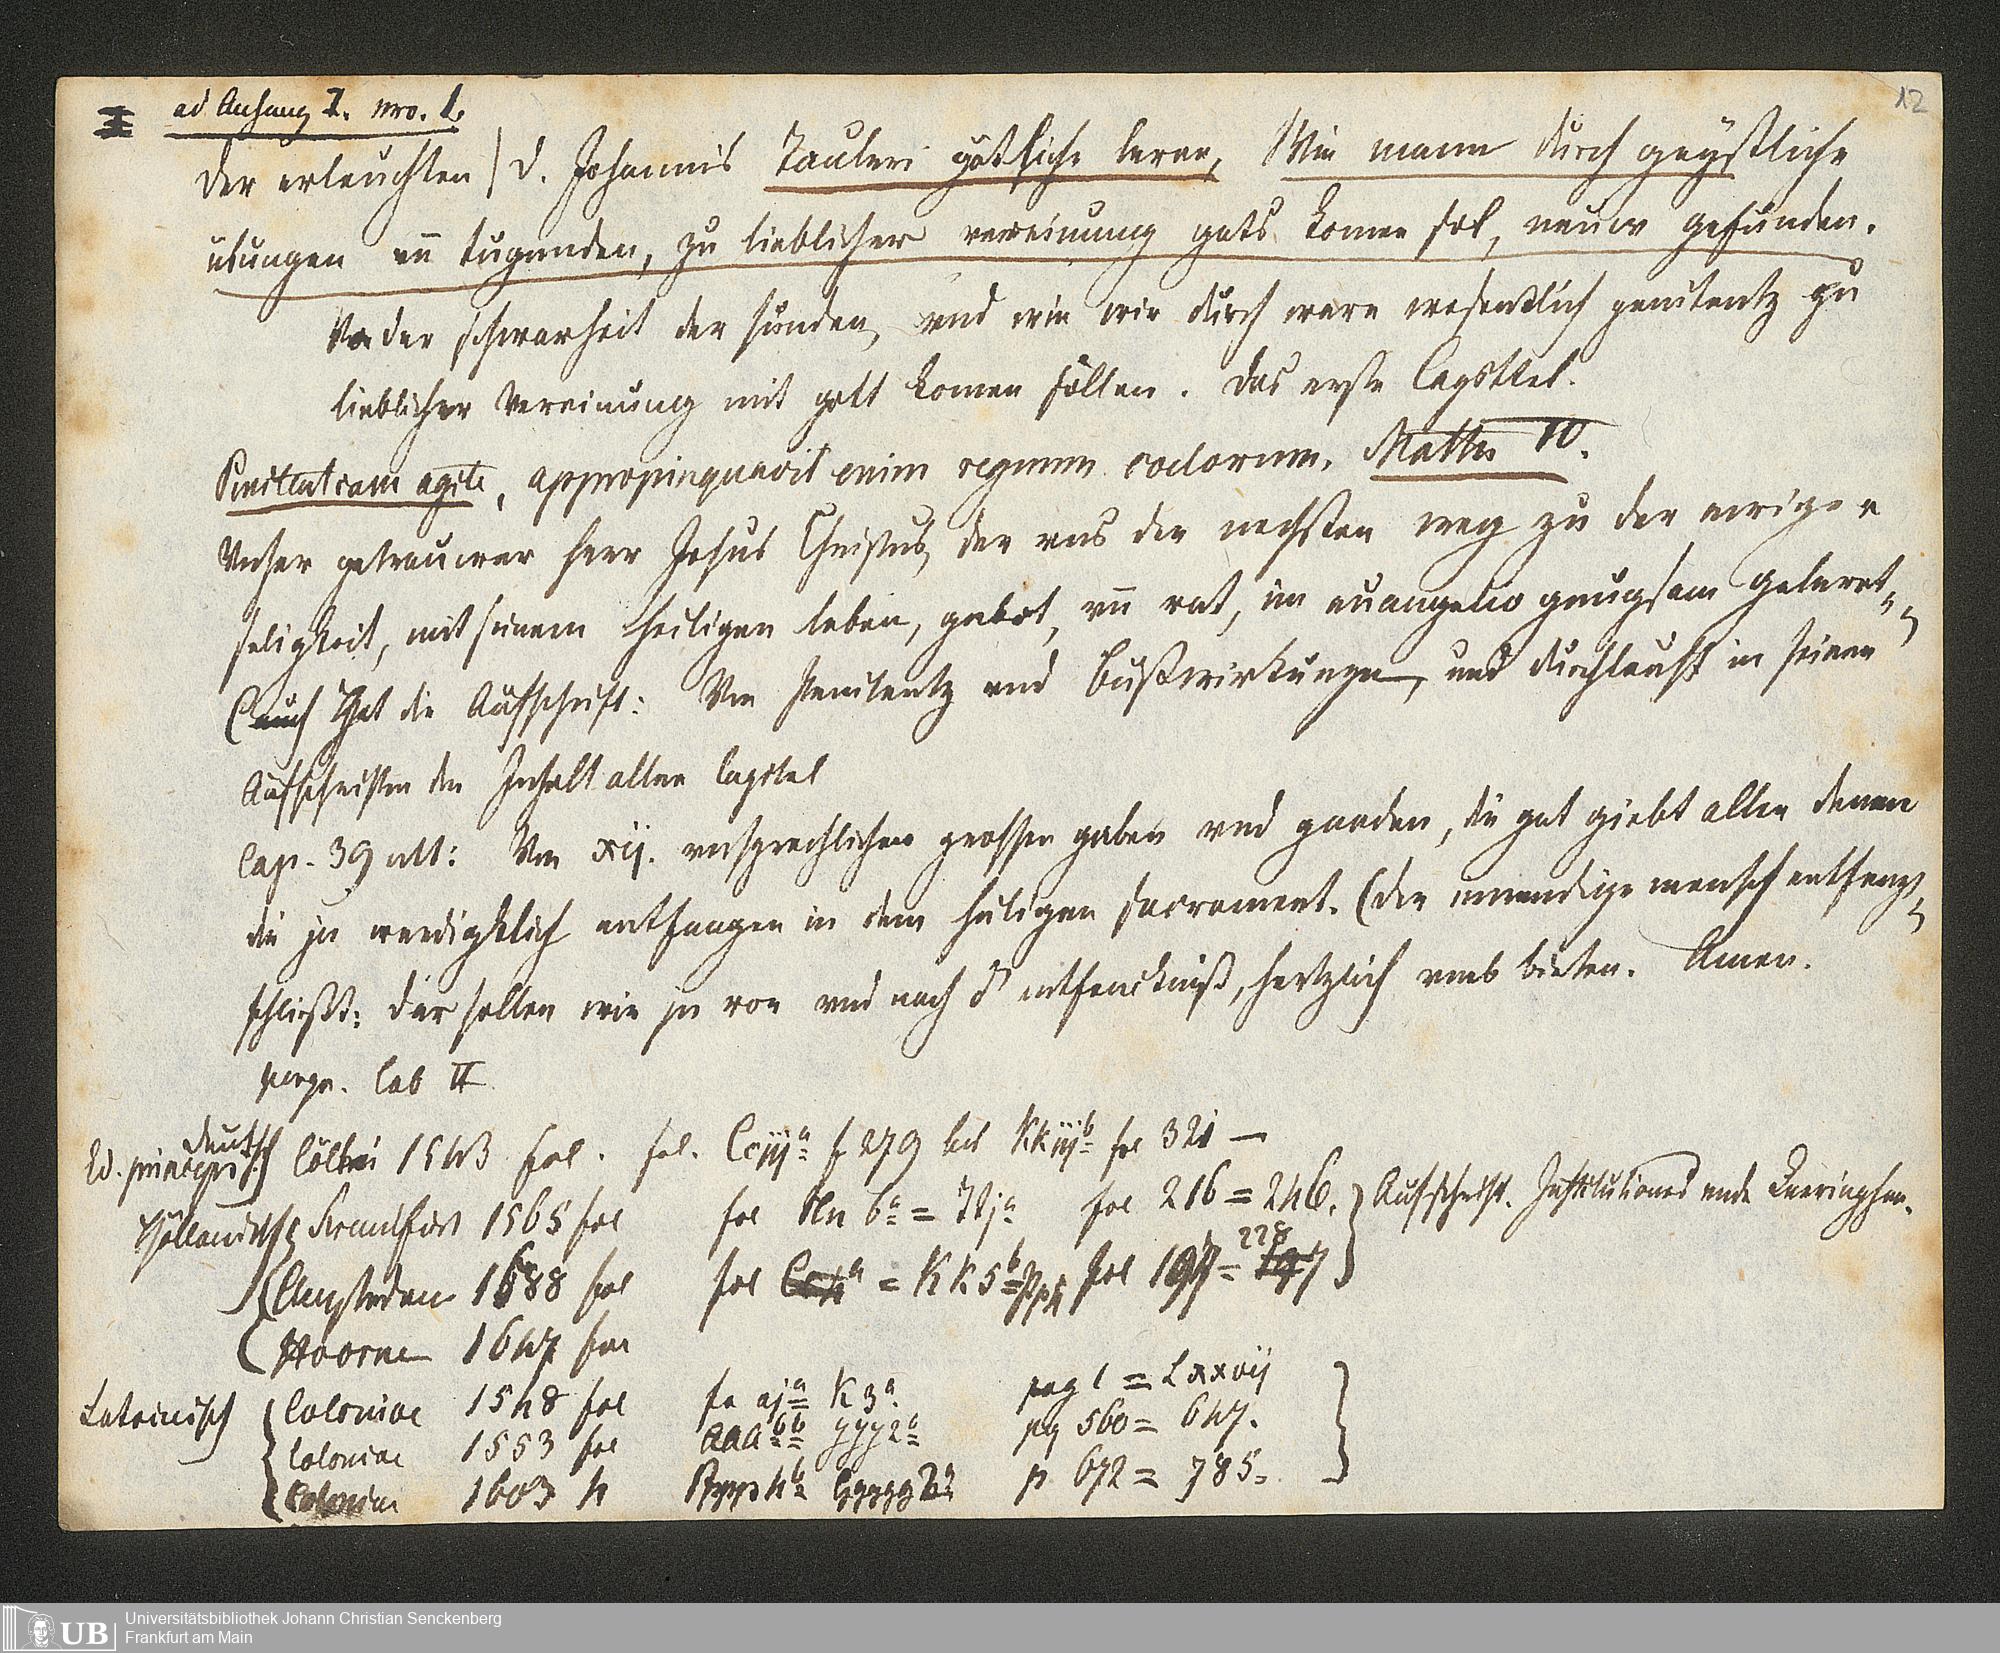 12
I ad Anhang I. nro. 1.
Der erleuchten | D. Johannis Tauleri götliche leren, Wie mann durch geystliche
ubungen vn̄ tugenden, zu lieblicher vereinung gots komen sol, neuw gefunden.
Vo der schwarheit der sunden, vnd wie wir durch ware wesentlich penitentz zu
lieblicher Vereinung mit gott komen söllen. Das erste Capittel.
Penitentiam agite, appropinquavit enim regnum coelorum. Matth. IV.
Unser getrauwer herr Jesus Christus, der vns den nechsten weg zu der ewigen
seligkeit, mit seinem heiligen leben, gebot, vn̄ rat, im euangelio gnugsam geleret
(auch Hat die Aufschrift: Von Penitentz vnd Bußwirkunge, und durchlauft in seinen
Aufschriften den Inhalt aller Capitel
Cap. 39 ult: Von xij. vnsprechlichen grossen gaben vnd gnaden, die got giebt allen denen
die jn werdigklich entfangen in dem heiligen sacrament. (der inwendige mensch entfeng
schließt: Dar sollen wir jn vor vnd nach d entfencknuß, hertzlich vmb bieten. Amen.
II
Ed. princeps deutsch) Cölln 1543 fol. fol. Cciijª f 279 bis Kkiijᵇ fol 321 —
Holländisch Franckfort 1565 fol fol Nn 6ª = fol 216 = 246. Aufschrift. Institutiones ende Leeringhen.
Amsterdam 1588 fol fol = Kk5ᵇ fol 197 = 228
Hoorne 1647 fol
Lateinisch Coloniae 1548 fol fo ajª K 3ª. pag 1 = Lxxvij
Coloniae 1553 fol AAA 6ᵇ yyy2ª pg 560 = 647.
Coloniae 1603 4 Pppp 4ᵇ Ggggg p 672 = 785.
UB
Universitätsbibliothek Johann Christian Senckenberg
Frankfurt am Main